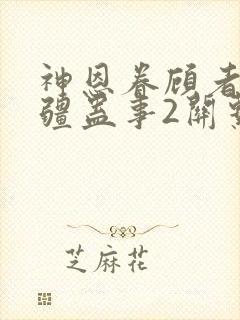 神恩眷顾者
疆盖事2開
芝麻花